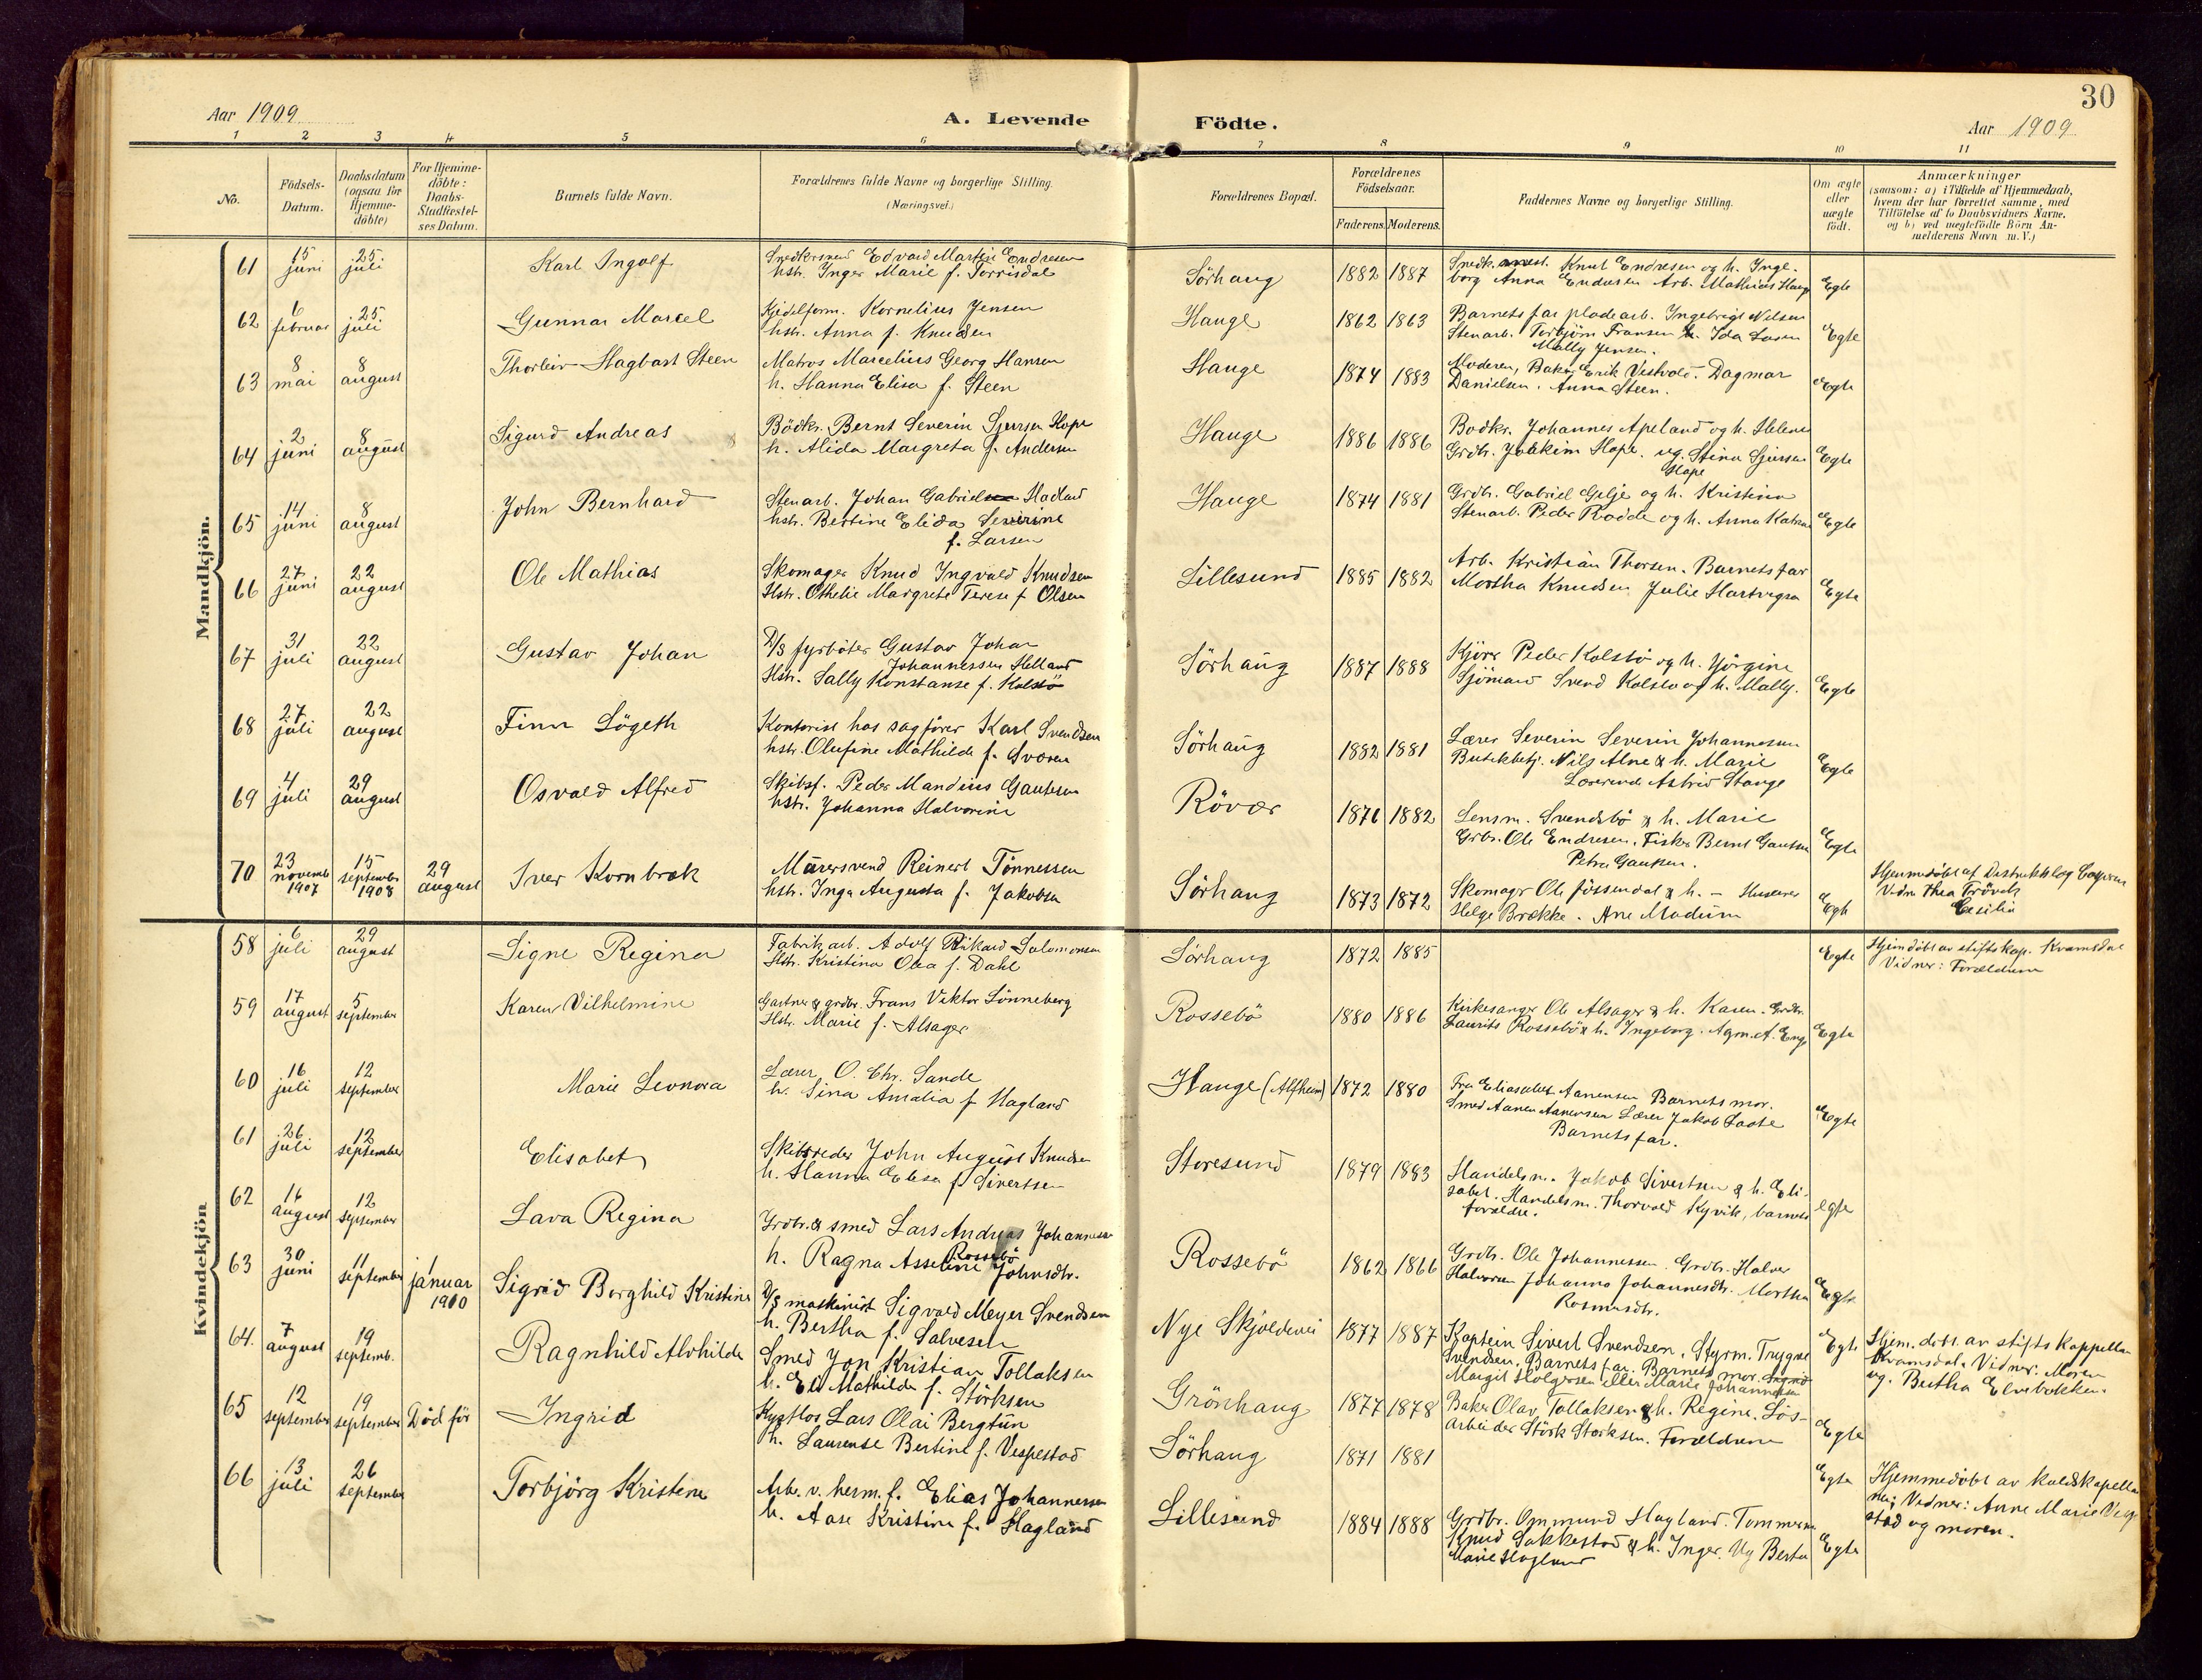 Aar 1909
A. Levende
Födte.
30
Aar 1909
1 2 3 4 5 6 7 8 9 10 11
No.
Födsels-
Datum.
Daabsdatum
(ogsaa for
Hjemme-
döbte)
For Hjemme-
döbte:
Daabs-
Stadfæstel-
ses Datum.
Barnets fulde Navn.
Forældrenes fulde Navne og borgerlige Stilling.
(Næringsvei.)
Forældrenes Bopæl.
Forældrenes
Födselsaar.
Faderens.
Moderens.
Faddernes Navne og borgerlige Stilling.
Om ægte
eller
uægte
födt.
Anmærkninger
(saasom: a) i Tilfælde af Hjemmedaab,
hvem der har forrettet samme, med
Tilföielse af to Daabsvidners Navne.
og b) ved uægtefödte Börn An-
melderens Navn m. V.)
Mandkjön.
61 15 juni 25 juli Karl Ingolf
Snedkersvend Edvard Martin Endresen
hstr. Inger Marie f. Torrisdal
Sörhaug 1882 1887
Snedk. Knut Endresen og h. Inge-
borg Anna Endresen Arb. Mathias Haug
Egte
62 6 februar 25 juli Gunnar Marcel
Kjedelform. Kornelius Jensen
hstr. Anna f. Knudsen
Hauge 1862 1863
Barnets far pladearb. Ingebrigt Nilsen
Stenarb. Torbjörn Fransen h. Ida
Mally Jensen.
Egte
63 8 mai 8 august Thorleiv Hagbart Steen
Matros Marcelius Georg Hansen
h. Hanna Elisa f. Steen
Hauge 1874 1883
Moderen, Baker Erik Vestvold. Dagmar
Danielsen. Anna Steen.
Egte
64 2 juni 8 august Sigurd Andreas
Bödkr. Bernt Severin Sjursen Hope
h. Alida Margreta f. Andersen
Hauge 1886 1886
Bödkr. Johannes Apeland og h. Helene
Grdbr. Joakim Hope. ug. Stina Sjursen
Hope
Egte
65 14 juni 8 august John Bernhard
Stenarb. Johan Gabriel Hadland
hstr. Bertine Elida Severine
f. Larsen
Hauge 1874 1881
Grdbr. Gabriel Gilje og h. Kristina
Stenarb. Peder Rodde og h. Anna
Egte
66 27 juni 22 august Ole Mathias
Skomager Knud Ingvald Knudsen
Hstr. Othelie Margrete Terese f Olsen
Lillesund 1885 1882
Arb. Kristian Thorsen. Barnets far
Martha Knudsen Julie
Egte
67 31 juli 22 august Gustav Johan
D/S fyrböter Gustav Johan
Johannessen Helland
Hstr. Sally Konstanse f. Kolstö
Sörhaug 1887 1888
Kjörer Peder Kolstö og h. Jörgine
Sjömand Svend Kolstö og h. Mally.
Egte
68 27 juli 22 august Finn Lögeth
Kontorist hos sagförer Karl Svendsen
hstr. Olufine Mathilde f. Svoren
Sörhaug 1882 1881
Lærer Severin Severin Johannessen
Butikbetj. Nils Alne & h. Marie
Lærerinde Astrid Stange
Egte
69 4 juli 29 august Osvald Alfred
Skibsf. Peder Mandius Gautesen
hstr. Johanna Halvorine
Rövær 1876 1882
Lensm. Svendsbö & h. Marie
Grbr. Ole Endresen. Fisker Bernt Gautesen
Petra Gautsen.
Egte
70 23 novemb 1907 15 septembr 1908 29 august Iver Kornbræk
Murersvend Reinert Tönnessen
hstr. Inga Augusta f. Jakobsen
Sörhaug 1873 1872
Skomagr Ole Jössendal & h. – Huseier
Helge Brække. Ane Madum
Egte
Hjemmedöbt af Distriktslæge
Vidn. Thea
Cesilia
Kvindekjön
58 6 juli 29 august Signe Regina
Fabrikarb. Adolf Rikard Salomonsen
Hstr. Kristina Olea f. Dahl
Sörhaug 1872 1885
Egte
Hjemdöbt av stiftskap. Kvamsdal
Vidner: Forældrene
59 17 august 5 september Karen Vilhelmine
Gartner & grdbr. Frans Viktor Lönneberg
Hstr. Marie f. Alsager
Rossebö 1880 1886
Kirkesanger Ole Alsager & h. Karen. Grdbr.
Laurits Rossebö & h. Ingeborg. Agn. A. Enge
Egte
60 16 juli 12 september Marie Leonora
Lærer O. Chr. Sande
h. Sina Amalia f Hagland
Hauge (Alfheim) 1872 1880
Fru Eliasabet Aanensen Barnets mor.
Smed Aanen Aanensen Lærer Jakob
Barnets far.
Egte
61 26 juli 12 september Elisabet
Skibsreder John August Knudsen
h. Hanna Elisa f Sivertsen
Storesund 1879 1883
Handelsm. Jakob Sivertsen & h. Eli-
sabet. Handelsm. Thorvald Kyvik, barnets
forældre.
egte
62 16 august 12 september Lava Regina
Grdbr. & smed Lars Andreas Johannessen
Rossebö
h. Ragna Asseline Johnsdtr.
Rossebö 1862 1866
Grdbr. Ole Johannessen. Grdbr. Halvor
Halvorsen Johanna Johannesdtr. Martha
Rasmusdtr.
Egte
63 30 juni 11 september 1 januar 1910 Sigrid Borghild Kristine
D/S maskinist Sigvald Meyer Svendsen
h. Bertha f. Salvesen
Nye Skjoldevei 1877 1887
Kaptein Sivert Svendsen, Styrm. Trygve
Svendsen, Barnets far. Barnets mor.
Margit Holgersen eller Marie Johannessen
Egte
Hjem. döbt. av stifts kappellan
Kvamsdal. Vidner: Moren
ug. Bertha Elvebakken.
64. 7 august 19 septemb. Ragnhild Alvhilde
Smed Jon Kristian Tollaksen
h. Eli Mathilde f. Störksen
Grönhaug 1877 1878
Baker Olav Tollaksen & h. Regine. Lös-
arbeider Störk Störksen. Forældrene
Egte
65 12 september 19 september Död för Ingrid
Lars Olai Bergtun
h. Laurense Bertine f. Vespestad
Sörhaug 1871 1881
Egte
Hjemmedöbt av kaldskapella-
nen; Vidner: Anne Marie Vespe-
stad og moren.
66 13 juli 26 september Torbjörg Kristine
Arb. v. herm. f. Elias Johannessen
h. Aase Kristine f. Hagland
Lillesund 1884 1888
Grdbr. Ommund Hagland. Tømmerm.
Knud Sakkestad & h. Inger. Ug Berta
Marie Hagland
Egte